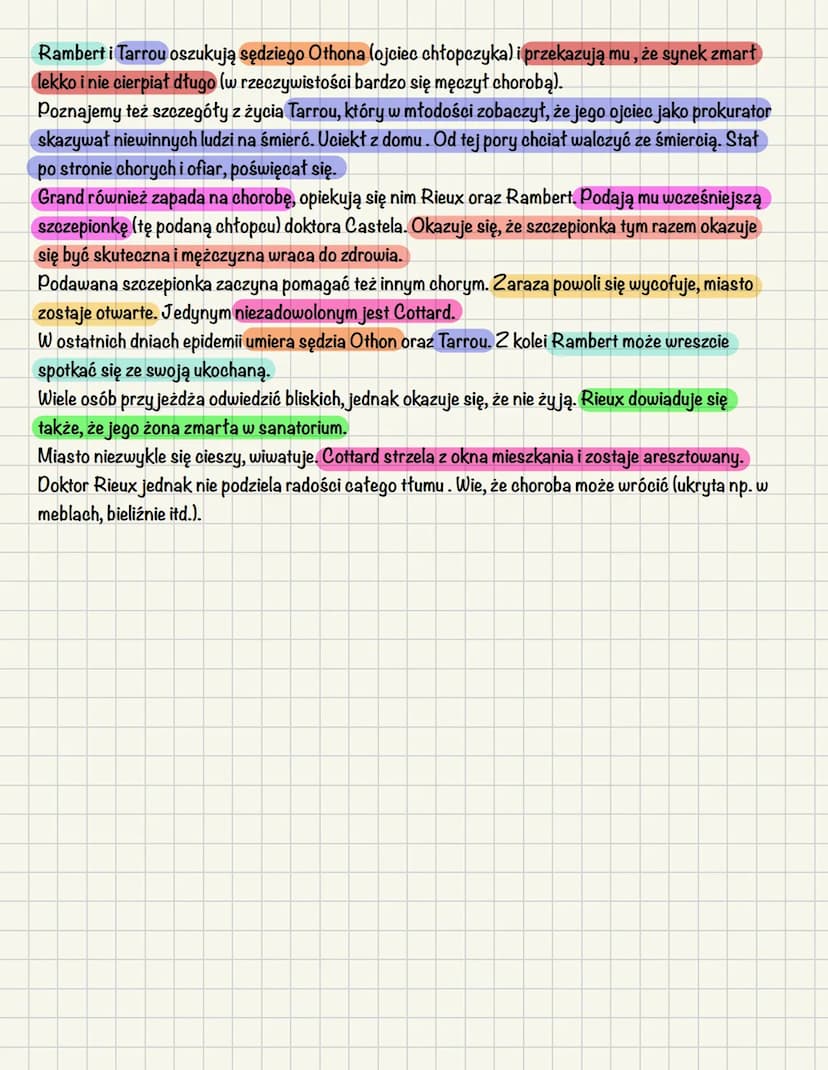 Rambert i Tarrou oszukują sędziego Othona (ojciec chłopczyka) i przekazują mu , że synek zmarł
lekko i nie cierpiał długo (w rzeczywistości bardzo się męczył chorobą).
Poznajemy też szczegóły z życia Tarrou, który w młodości zobaczył, że jego ojciec jako prokurator
skazywał niewinnych ludzi na śmierć. Uciekł z domu . Od tej pory chciał walczyć ze śmiercią. Stał
po stronie chorych i ofiar, poświęcał się.
Grand również zapada na chorobę, opiekują się nim Rieux oraz Rambert. Podają mu wcześniejszą
szczepionkę (tę podaną chłopcu) doktora Castela. Okazuje się, że szczepionka tym razem okazuje
się być skuteczna i mężczyzna wraca do zdrowia.
Podawana szczepionka zaczyna pomagać też innym chorym. Zaraza powoli się wycofuje, miasto
zostaje otwarte. Jedynym niezadowolonym jest Cottard.
W ostatnich dniach epidemii umiera sędzia Othon oraz Tarrou. Z kolei Rambert może wreszcie
spotkać się ze swoją ukochaną.
Wiele osób przyjeżdża odwiedzić bliskich, jednak okazuje się, że nie żyją. Rieux dowiaduje się
także, że jego żona zmarła w sanatorium.
Miasto niezwykle się cieszy, wiwatuje. Cottard strzela z okna mieszkania i zostaje aresztowany.
Doktor Rieux jednak nie podziela radości całego tłumu . Wie, że choroba może wrócić (ukryta np. w
meblach, bieliźnie itd.).